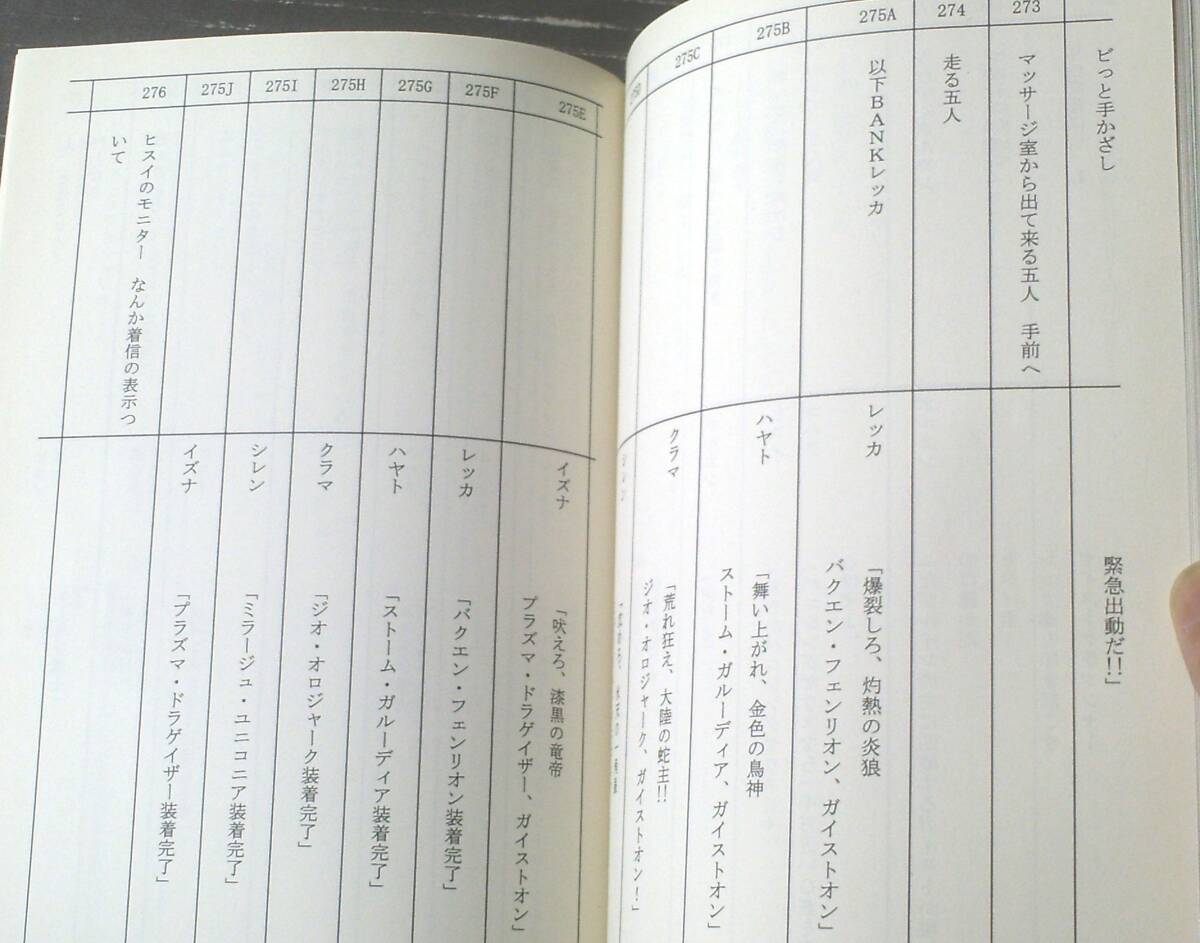 ビっと手かざし
緊急出動だ!!」
273
マッサージ室から出て来る五人　手前へ
274
走る五人
275A
以下BANKレッカ
レッカ
「爆裂しろ、灼熱の炎狼
バクエン・フェンリオン、ガイストオン」
275B
ハヤト
「舞い上がれ、金色の鳥神
ストーム・ガルーディア、ガイストオン」
275C
クラマ
「荒れ狂え、大陸の蛇主!!
ジオ・オロジャーク、ガイストオン！」
シレン
275E
イズナ
「吠えろ、漆黒の竜帝
プラズマ・ドラゲイザー、ガイストオン」
275F
レッカ
「バクエン・フェンリオン装着完了」
275G
ハヤト
「ストーム・ガルーディア装着完了」
275H
クラマ
「ジオ・オロジャーク装着完了」
275I
シレン
「ミラージュ・ユニコニア装着完了」
275J
イズナ
「プラズマ・ドラゲイザー装着完了」
276
ヒスイのモニター　なんか着信の表示つ
いて